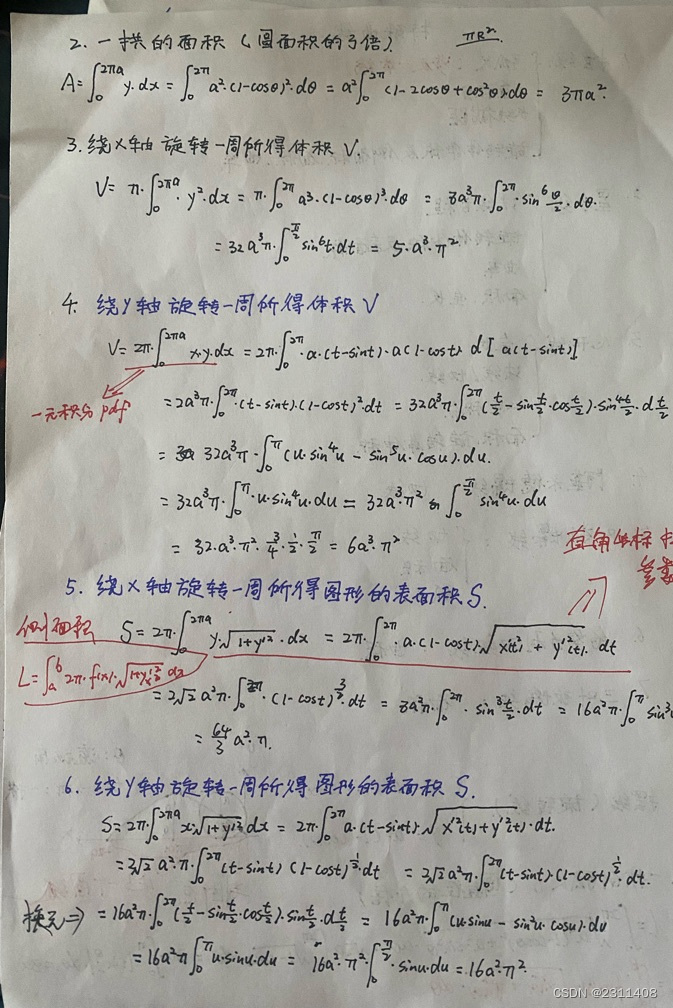 2. 一拱的面积 (圆面积的3倍). πR².
A=∫₀^{2πa} y·dx = ∫₀^{2π} a²·(1-cosθ)²·dθ = a²∫₀^{2π}(1-2cosθ+cos²θ)dθ = 3πa².
3. 绕X轴旋转一周所得体积V.
V= π·∫₀^{2πa} y²·dx = π·∫₀^{2π} a³·(1-cosθ)³·dθ = 8a³π·∫₀^{2π}·sin⁶θ/2·dθ.
= 32a³π·∫₀^{π/2} sin⁶t·dt = 5·a³·π²
4. 绕Y轴旋转一周所得体积V
V= 2π·∫₀^{2πa} x·y·dx = 2π·∫₀^{2π}·a·(t-sint)·a(1-cost) d[a(t-sint)]
一元积分pdf
= 2a³π·∫₀^{2π}·(t-sint)·(1-cost)²·dt = 32a³π·∫₀^{2π}(t/2-sin t/2·cos t/2)·sin⁴t/2·d t/2
= 32a³π·∫₀^{π}(u·sin⁴u - sin⁵u·cosu)·du.
= 32a³π·∫₀^{π}·u·sin⁴u·du = 32a³·π² ∫₀^{π/2} sin⁴u·du
= 32·a³·π²·3/4·1/2·π/2 = 6a³·π²
直角坐标
参数
5. 绕X轴旋转一周所得图形的表面积S.
侧面积
S = 2π·∫₀^{2πa} y·√(1+y'²)·dx = 2π·∫₀^{2π}·a·(1-cost)√(x'²(t)+y'²(t))·dt
L=∫ₐᵇ 2π·f(x)·√(1+y'²) dx
= 2√2 a²π·∫₀^{2π}·(1-cost)^{3/2}·dt = 8a²π·∫₀^{2π}·sin³t/2·dt = 16a²π·∫₀^{π} sin³
= 64/3 a²·π.
6. 绕Y轴旋转一周所得图形的表面积S.
S=2π·∫₀^{2πa} x·√(1+y'²) dx = 2π·∫₀^{2π} a·(t-sint)·√(x'²(t)+y'²(t))·dt.
=2√2 a²π·∫₀^{2π}(t-sint)(1-cost)^{1/2}·dt = 2√2 a²π·∫₀^{2π}(t-sint)·(1-cost)^{1/2}·dt.
换元⇒ = 16a²π·∫₀^{2π}(t/2-sin t/2·cos t/2)·sin t/2·d t/2 = 16a²π·∫₀^{π}(u·sinu - sin²u·cosu)·du
= 16a²π∫₀^{π} u·sinu·du = 16a²·π²∫₀^{π/2}·sinu·du = 16a²·π².
CSDN @2311408